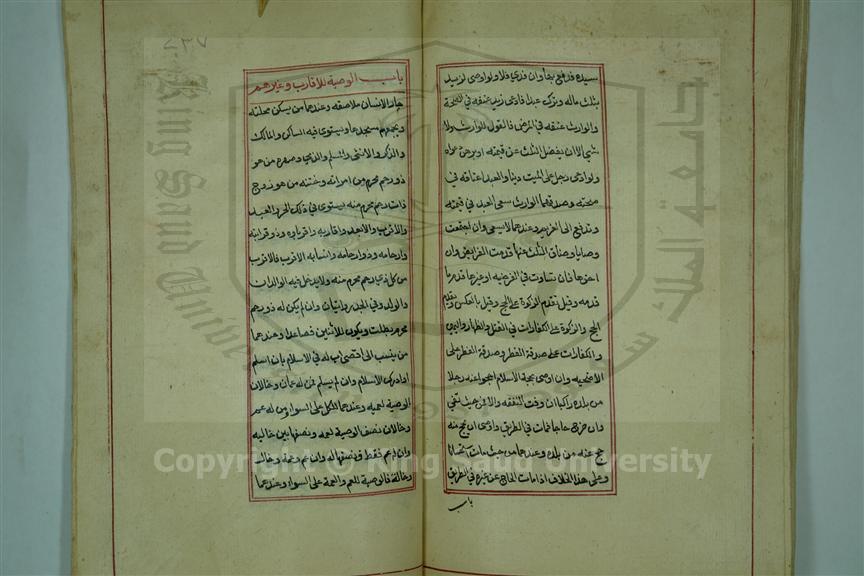 سيده فدفع بها وان فدي فلا ولو اوصى لزيد
بثلث ماله وترك عبدا فادعى زيد عتقه في الصحة
والوارث عتقه في المرض فالقول للوارث ولا
شيء الا ان يفضل الثلث عن قيمته او يبرهن على
ولو ادعى رجل على الميت دينا والعبد اعتاقه في
صحته وصدقهما الوارث سعى العبد في قيمته
وتدفع الى الغريم وعندهما لا يسعى وان اجتمعت
وصايا وضاق الثلث عنها قدمت الفرايض وان
اخرها فان تساوت في الفرضية او غيرها قدم ما
قدمه وقيل تقدم الزكوة على الحج وقيل بالعكس وتقدم
الحج والزكوة على الكفارات في القتل والظهار واليمين
والكفارات على صدقة الفطر وصدقة الفطر على
الاضحيه وان اوصى بحجة الاسلام احجوا عنه رجلا
من بلده راكبا ان وفت النفقه والا فمن حيث تفي
وان خرج حاجا فمات في الطريق واوصى ان يحج عنه
حج عنه من بلده وعندهما من حيث مات استحسانا
وعلى هذا الخلاف اذا مات الحاج عن غيره في الطريق
باب
٢٣٧
باب الوصية للاقارب وغيرهم
جار الانسان ملاصقه وعندهما من يسكن محلته
ويجمعهم مسجدها ويستوي فيه الساكن والمالك
والذكر والانثى والمسلم والذمي وصهره من هو
ذو رحم محرم من امراته وختنه من هو زوج
ذات رحم محرم منه يستوي في ذلك الحر والعبد
والاقرب والابعد واقاربه واقرباوه وذو قرابته
وارحامه وذوار حامه وانسابه الاقرب فالاقرب
من كل ذي رحم محرم منه ولا يدخل فيه الوالدان
والولد وفي الجد روايتان وان لم يكن له ذو رحم
محرم بطلت ويكون للاثنين فصاعدا وعندهما
من ينسب الى اقصى اب له في الاسلام بان اسلم
او ادرك الاسلام وان لم يسلم فمن له عمان وخالان
الوصية لعميه وعندهما الكل على السوا ومن له عم
وخالان نصف الوصية لعمه ونصفها بين خاليه
وان له عم فقط فنصفها له وان عم وعمة وخال
وخالة فالوصية للعم والعمة على السوا وعندهما
Copyright © King Saud University